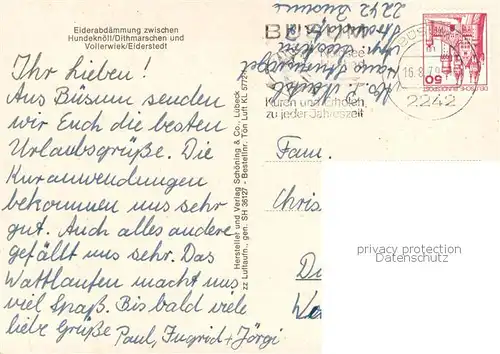 Eiderabdämmung zwischen
Hundeknöll/Dithmarschen und
Vollerwiek/Eiderstedt
Ihr Lieben!
Aus Büsum senden
wir Euch die besten
Urlaubsgrüße. Die
Kuranwendungen
bekommen uns sehr
gut. Auch alles andere
gefällt uns sehr. Das
Wattlaufen macht uns
viel Spaß. Bis bald viele
liebe Grüße Paul, Ingrid + Jörgi
Hersteller und Verlag Schöning & Co., Lübeck
zz Luftaufn., gen. SH 36127 - Bestellnr. Tön Luft KL 5772
2242 Büsum
BÜSUM
Kuren und Erholen,
zu jeder Jahreszeit
2242
50
DEUTSCHE BUNDESPOST
Fam.
Chris
privacy protection
Datenschutz.